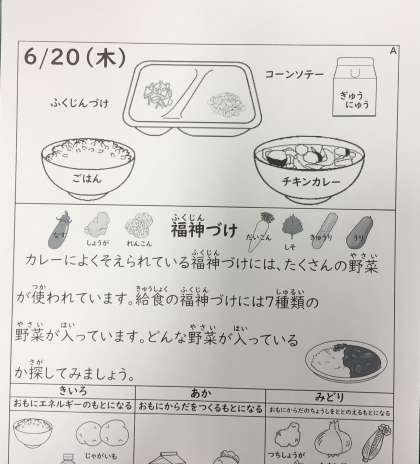 6/20(木)
A
コーンソテー
ぎゅうにゅう
ふくじんづけ
ごはん
チキンカレー
なす
しょうが
れんこん
福神づけ
ふくじん
だいこん
しそ
きゅうり
うり
カレーによくそえられている福神づけには、たくさんの野菜
ふくじん
やさい
が使われています。給食の福神づけには7種類の
つか
きゅうしょく
ふくじん
しゅるい
野菜が入っています。どんな野菜が入っている
やさい
はい
やさい
はい
か探してみましょう。
さが
きいろ
あか
みどり
おもにエネルギーのもとになる
おもにからだをつくるもとになる
おもにからだのちょうしをととのえるもとになる
じゃがいも
つちしょうが